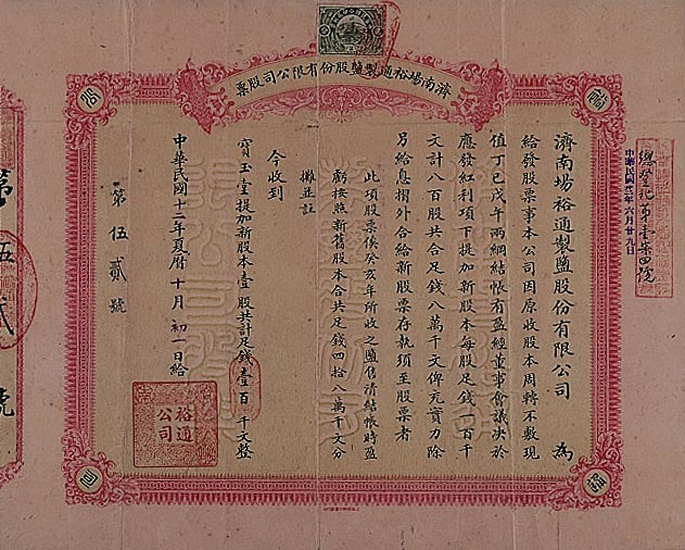 濟南場裕通製鹽股份有限公司股票
濟南場裕通製鹽股份有限公司 為
給發股票事本公司因原收股本周轉不敷現
值丁巳戊午兩綱結帳有盈經董事會議决於
應發紅利項下提加新股本每股足錢一百千
文計八百股共合足錢八萬千文俾充實力除
另給息摺外合給新股票存執須至股票者
此項股票俟癸亥年所收之鹽售清結帳時盈
虧按照新舊股本合共足錢四拾八萬千文分
攤並註
今收到
寶玉堂提加新股本壹股共計足錢壹百千文整
中華民國十二年夏曆十月初一日給
第伍貳號
裕通
公司
中華民國 年六月廿九日
第伍貳號